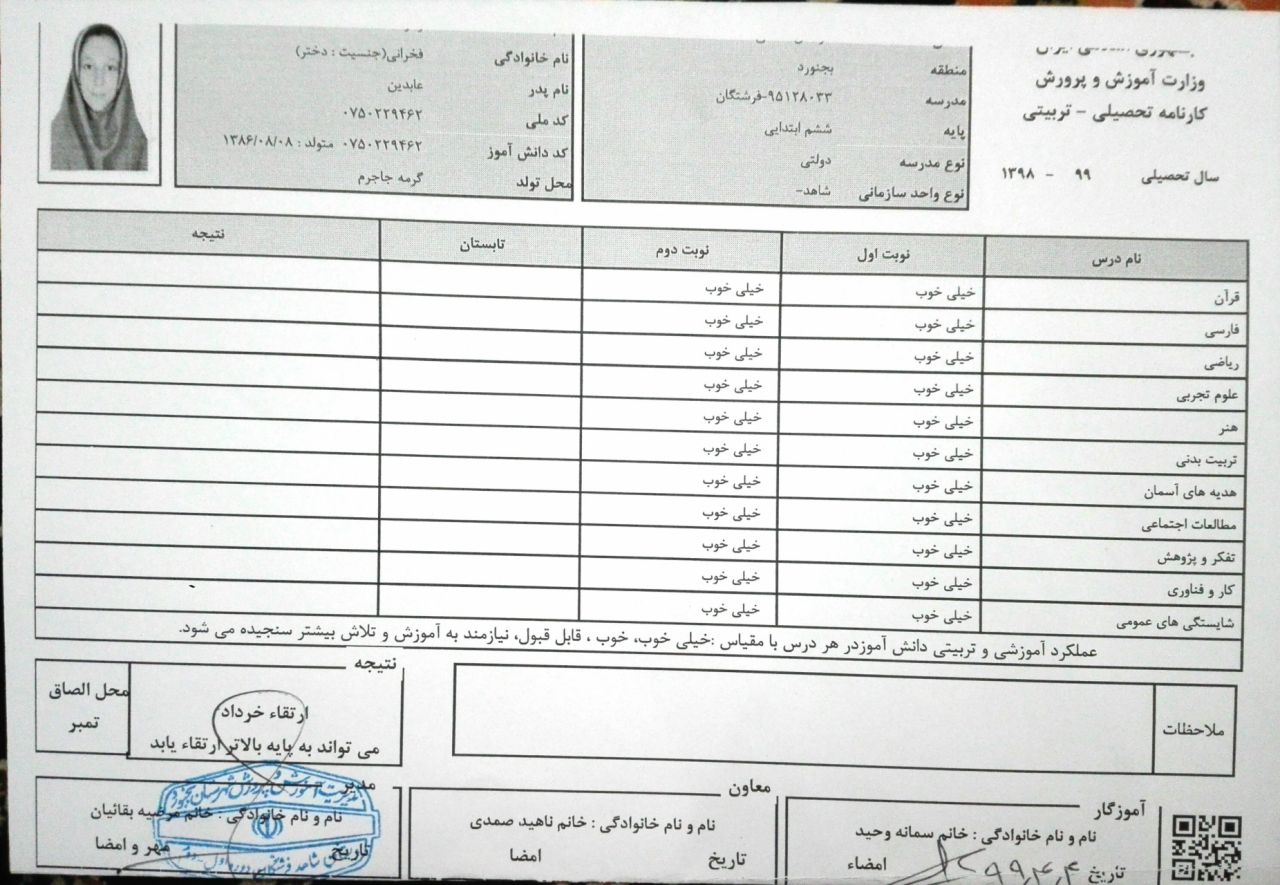 وزارت آموزش و پرورش
کارنامه تحصیلی - تربیتی
سال تحصیلی ۹۹ - ۱۳۹۸
منطقه بجنورد
مدرسه ۹۵۱۲۸۰۳۳-فرشتگان
پایه ششم ابتدایی
نوع مدرسه دولتی
نوع واحد سازمانی شاهد-
نام خانوادگی فخرانی(جنسیت : دختر)
نام پدر عابدین
کد ملی ۰۷۵۰۲۲۹۴۶۲
کد دانش آموز ۰۷۵۰۲۲۹۴۶۲ متولد : ۱۳۸۶/۰۸/۰۸
محل تولد گرمه جاجرم
نام درس نوبت اول نوبت دوم تابستان نتیجه
قرآن خیلی خوب خیلی خوب
فارسی خیلی خوب خیلی خوب
ریاضی خیلی خوب خیلی خوب
علوم تجربی خیلی خوب خیلی خوب
هنر خیلی خوب خیلی خوب
تربیت بدنی خیلی خوب خیلی خوب
هدیه های آسمان خیلی خوب خیلی خوب
مطالعات اجتماعی خیلی خوب خیلی خوب
تفکر و پژوهش خیلی خوب خیلی خوب
کار و فناوری خیلی خوب خیلی خوب
شایستگی های عمومی خیلی خوب خیلی خوب
عملکرد آموزشی و تربیتی دانش آموزدر هر درس با مقیاس :خیلی خوب، خوب ، قابل قبول، نیازمند به آموزش و تلاش بیشتر سنجیده می شود.
ملاحظات
نتیجه
ارتقاء خرداد
می تواند به پایه بالاتر ارتقاء یابد
محل الصاق
تمبر
آموزگار
نام و نام خانوادگی : خانم سمانه وحید
تاریخ ۹۹،۴،۴ امضاء
معاون
نام و نام خانوادگی : خانم ناهید صمدی
تاریخ امضا
مدیر
نام و نام خانوادگی : خانم مرضیه بقائیان
تاریخ مهر و امضا
مدیریت آموزش و پرورش شهرستان بجنورد